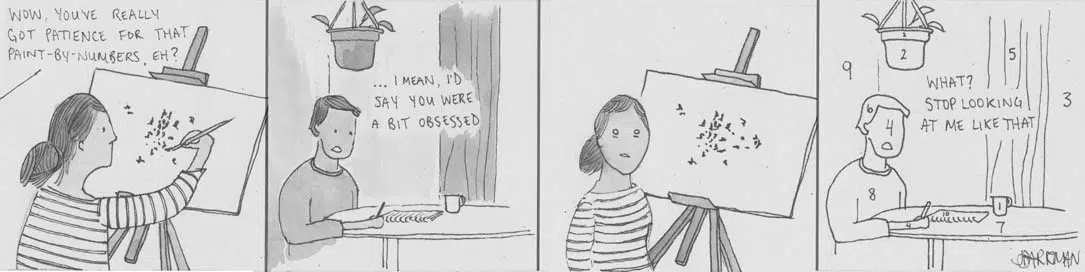 WOW, YOU'VE REALLY
GOT PATIENCE FOR THAT
PAINT-BY-NUMBERS, EH?
... I MEAN, I'D
SAY YOU WERE
A BIT OBSESSED
2
2
5
9
3
WHAT?
STOP LOOKING
AT ME LIKE THAT
6
4
8
10
1
4
7
JBARKMAN